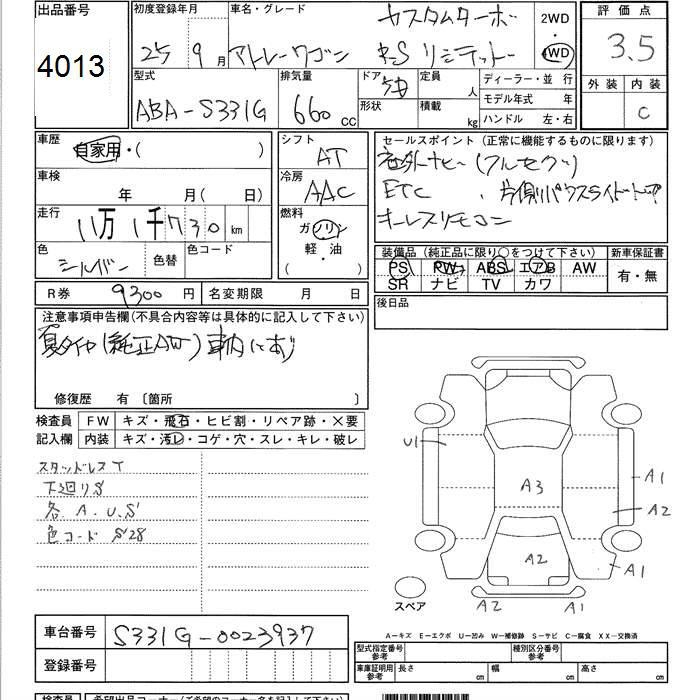 出品番号 初度登録年月 車名・グレード カスタムターボ 2WD 評価点
4013 25 9月 アトレーワゴン RS リミテッド 4WD 3.5
型式 排気量 ドア 定員 ディーラー・並 行 外装 内装
ABA-S331G 660 cc 5D 人 モデル年式 年 C
形状 積載 kg ハンドル 左・右
車歴 シフト セールスポイント (正常に機能するものに限ります)
自家用・( ) AT 社外ナビ (フルセグ)
車検 冷房 ETC 、片側パワスライドドア
年 月( 日) AAC キーレスリモコン
走行 燃料
11万1千730 km ガソリン
色 色替 色コード 軽・油
シルバー ( )
装備品 (純正品に限り○をつけて下さい) 新車保証書
PS PW ABS エアB AW 有・無
SR ナビ TV カワ
R券 9300円 名変期限 月 日 後日品
注意事項申告欄(不具合内容等は具体的に記入して下さい)
夏タイヤ(純正AW)車内にあり
修復歴 有 〔箇所 〕
検査員 FW キズ・飛石・ヒビ割・リペア跡・×要
記入欄 内装 キズ・汚レ・コゲ・穴・スレ・キレ・破レ
スタッドレスT
下廻りS
各.A.U.S
色コード S28
U1
A1
A3
A2
A2
A1
スペア A2 A1
A-キズ E-エクボ U-凹み W-補修跡 S-サビ C-腐食 XX-交換済
車台番号 S331G-0023937
登録番号
型式指定番号 参考 種別区分番号 参考
車庫証明用 参考 長さ cm 幅 cm 高さ cm
検査員 希望出品コーナー(ご希望のコーナー名を記入して下さい)